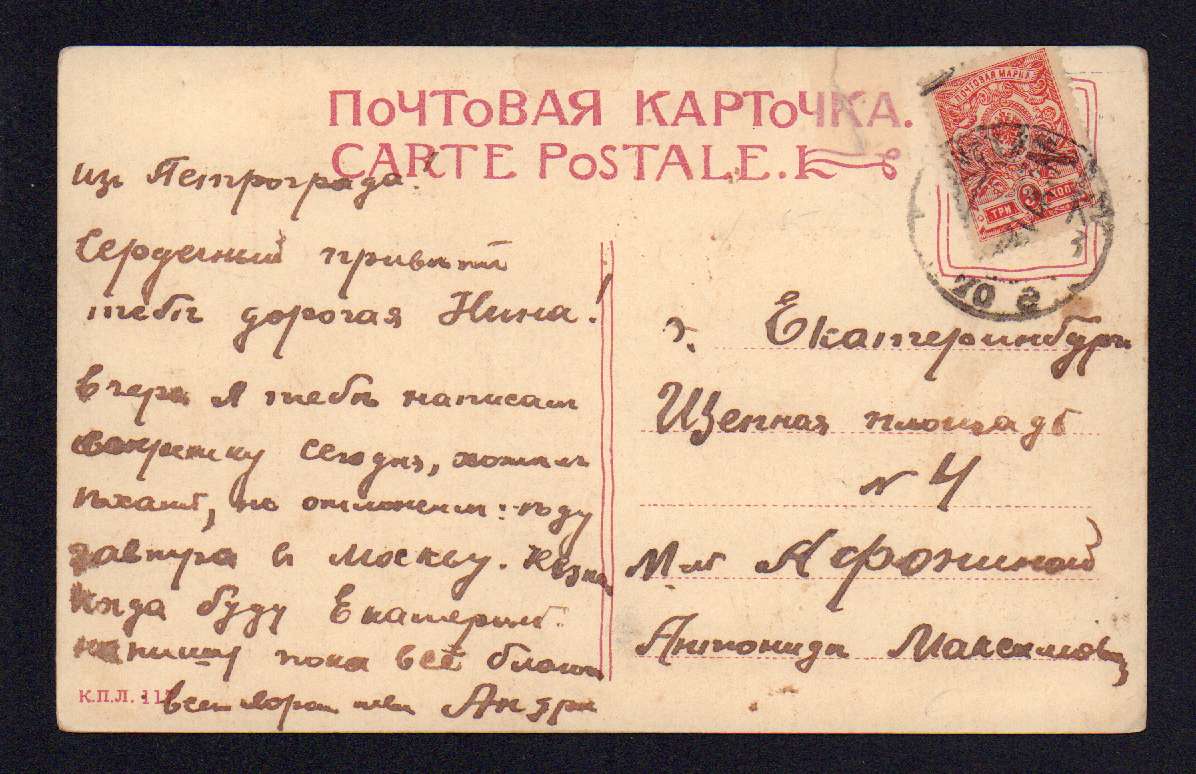 ПОЧТОВАЯ КАРТОЧКА.
CARTE POSTALE.
ПОЧТОВАЯ МАРКА
3
ТРИ КОП
изъ Петрограда.
Сердечный привѣтъ
тебѣ дорогая Нина!
Вчера я тебѣ написалъ
сегодня, хотѣлъ
ѣхать, но отложилъ: ѣду
завтра въ Москву.
Когда буду Екатеринб.
напишу пока всѣ
К.П.Л. 11
г. Екатеринбургъ
Щепная площадь
N 4
М-ль Афониной
Антонидѣ Максимовнѣ